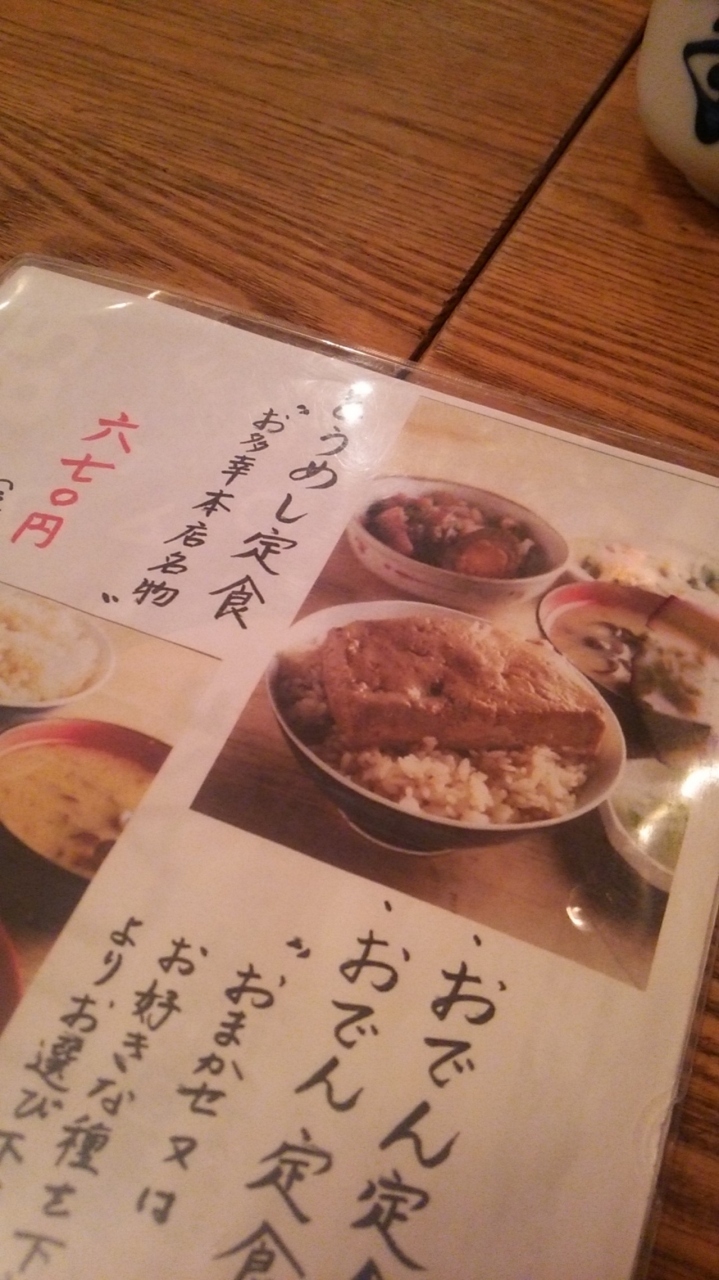 とうめし定食
〝お多幸本店名物〟
六七〇円
・おでん定食
・おでん定食
〝おまかせ又は
お好きな種を下
よりお選び下